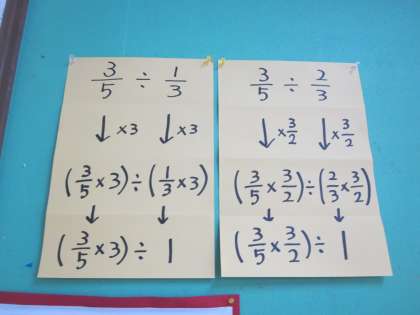 3/5 ÷ 1/3
↓ ×3 ↓ ×3
(3/5 × 3) ÷ (1/3 × 3)
↓ ↓
(3/5 × 3) ÷ 1
3/5 ÷ 2/3
↓ ×3/2 ↓ ×3/2
(3/5 × 3/2) ÷ (2/3 × 3/2)
↓ ↓
(3/5 × 3/2) ÷ 1